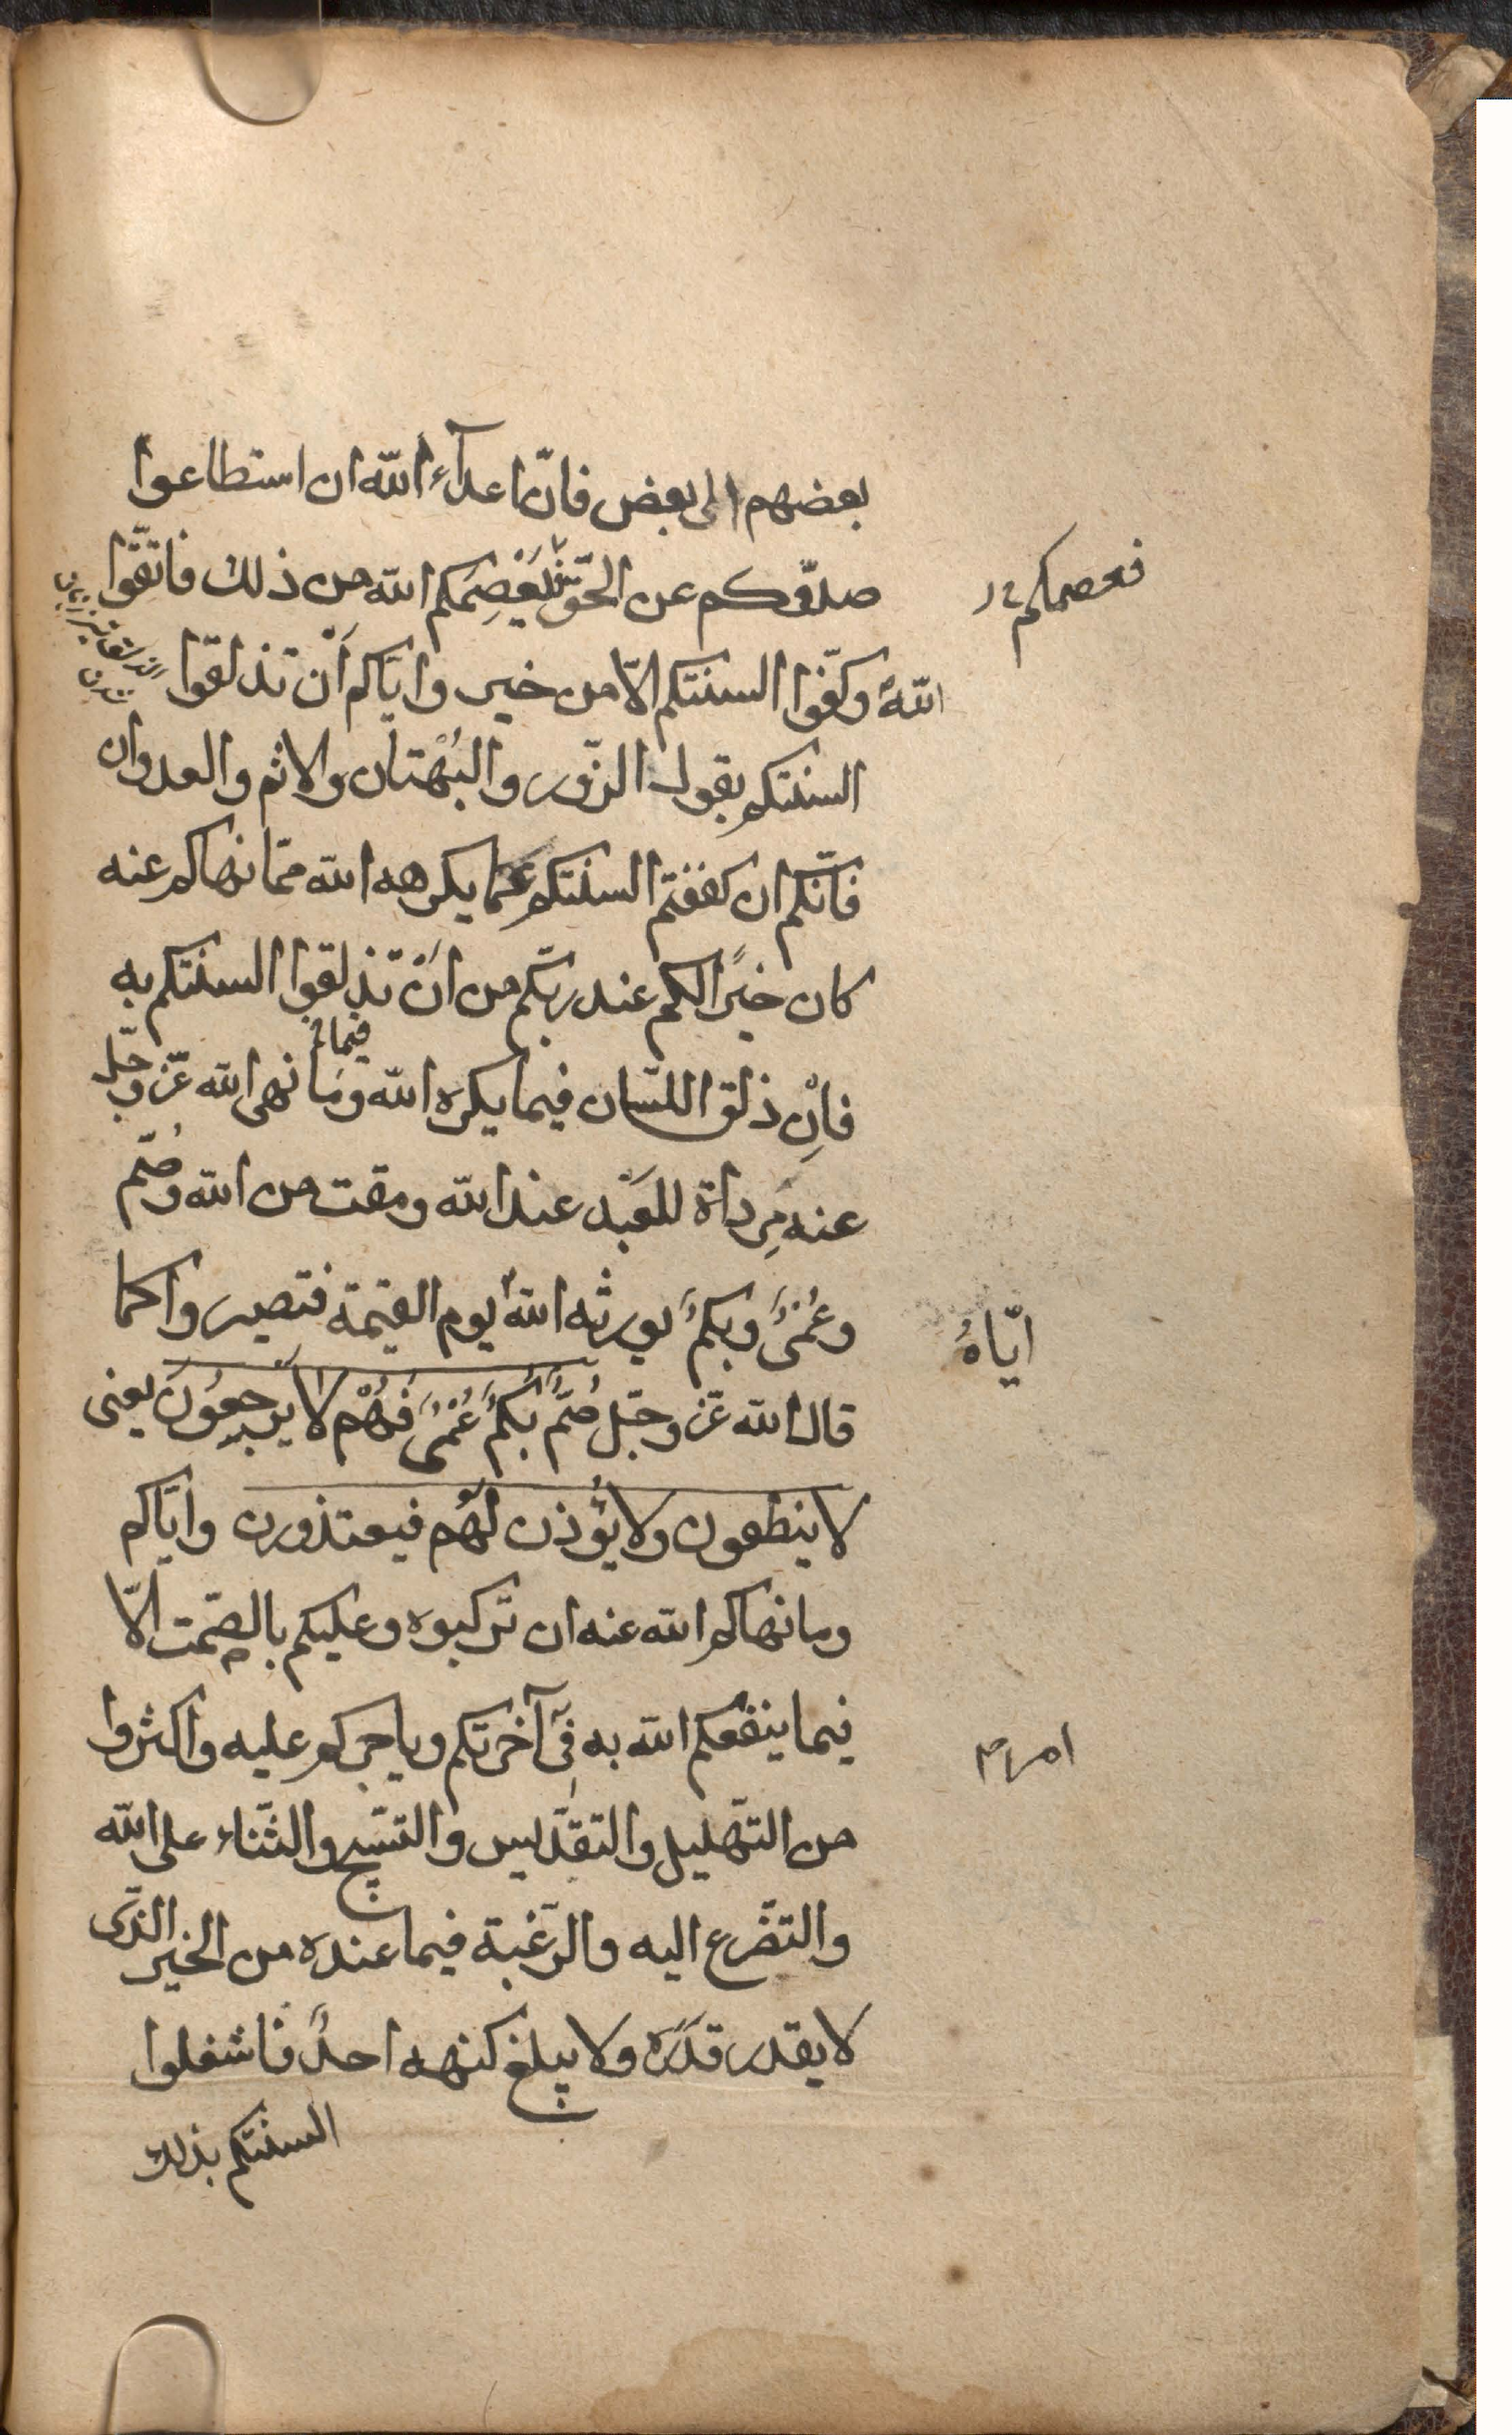 بعضهم الى بعض فانّ اعدآء الله ان استطاعوا
صدّوكم عن الحقّ فيَعْصِمَكم الله من ذلك فاتقَّوا
فعصمكم
اللهَ وكفّوا السنتكم الاّ من خير وايّاكم أَنْ تذلقوا
السنتكم بقول الزّور والبُهْتان والاثم والعدوان
فانّكم ان كففتم السنتكم عمّا يكرهه الله ممّا نهاكم عنه
كان خيرًا لكم عند ربّكم من اَنْ تذلقوا السنتكم به
فيما
فاِنّ ذلق اللسّان فيما يكره الله وما نهى الله عزّ وجلّ
عنه مِرداة للعَبْد عند الله ومقت من الله وصُمّ
وعُمْىٌ وبكمٌ يورثه اللهُ يوم القيمة فتصيروا كما
ايّاهُ
قال الله عزّ وجلّ صُمٌّ بُكْمٌ عُمْىٌ فَهُمْ لا يرجعوُنَ يعنى
لا ينطقون ولا يُؤذن لهُم فيعتذورن وايّاكم
وما نهاكم الله عنه ان تركبوه وعليكم بالصّمت الاّ
فيما ينفعكم الله به فى آخرتكم وياجركم عليه واكثروا
امر
من التهّليل والتقدّيس والتسّبيح والثنّاء على الله
والتضّرع اليه والرّغبة فيما عنده من الخير الذّى
لا يقدر قَدَرَه ولا يبلغ كنهه احدٌ فاشغلوا
السنتكم بذلك